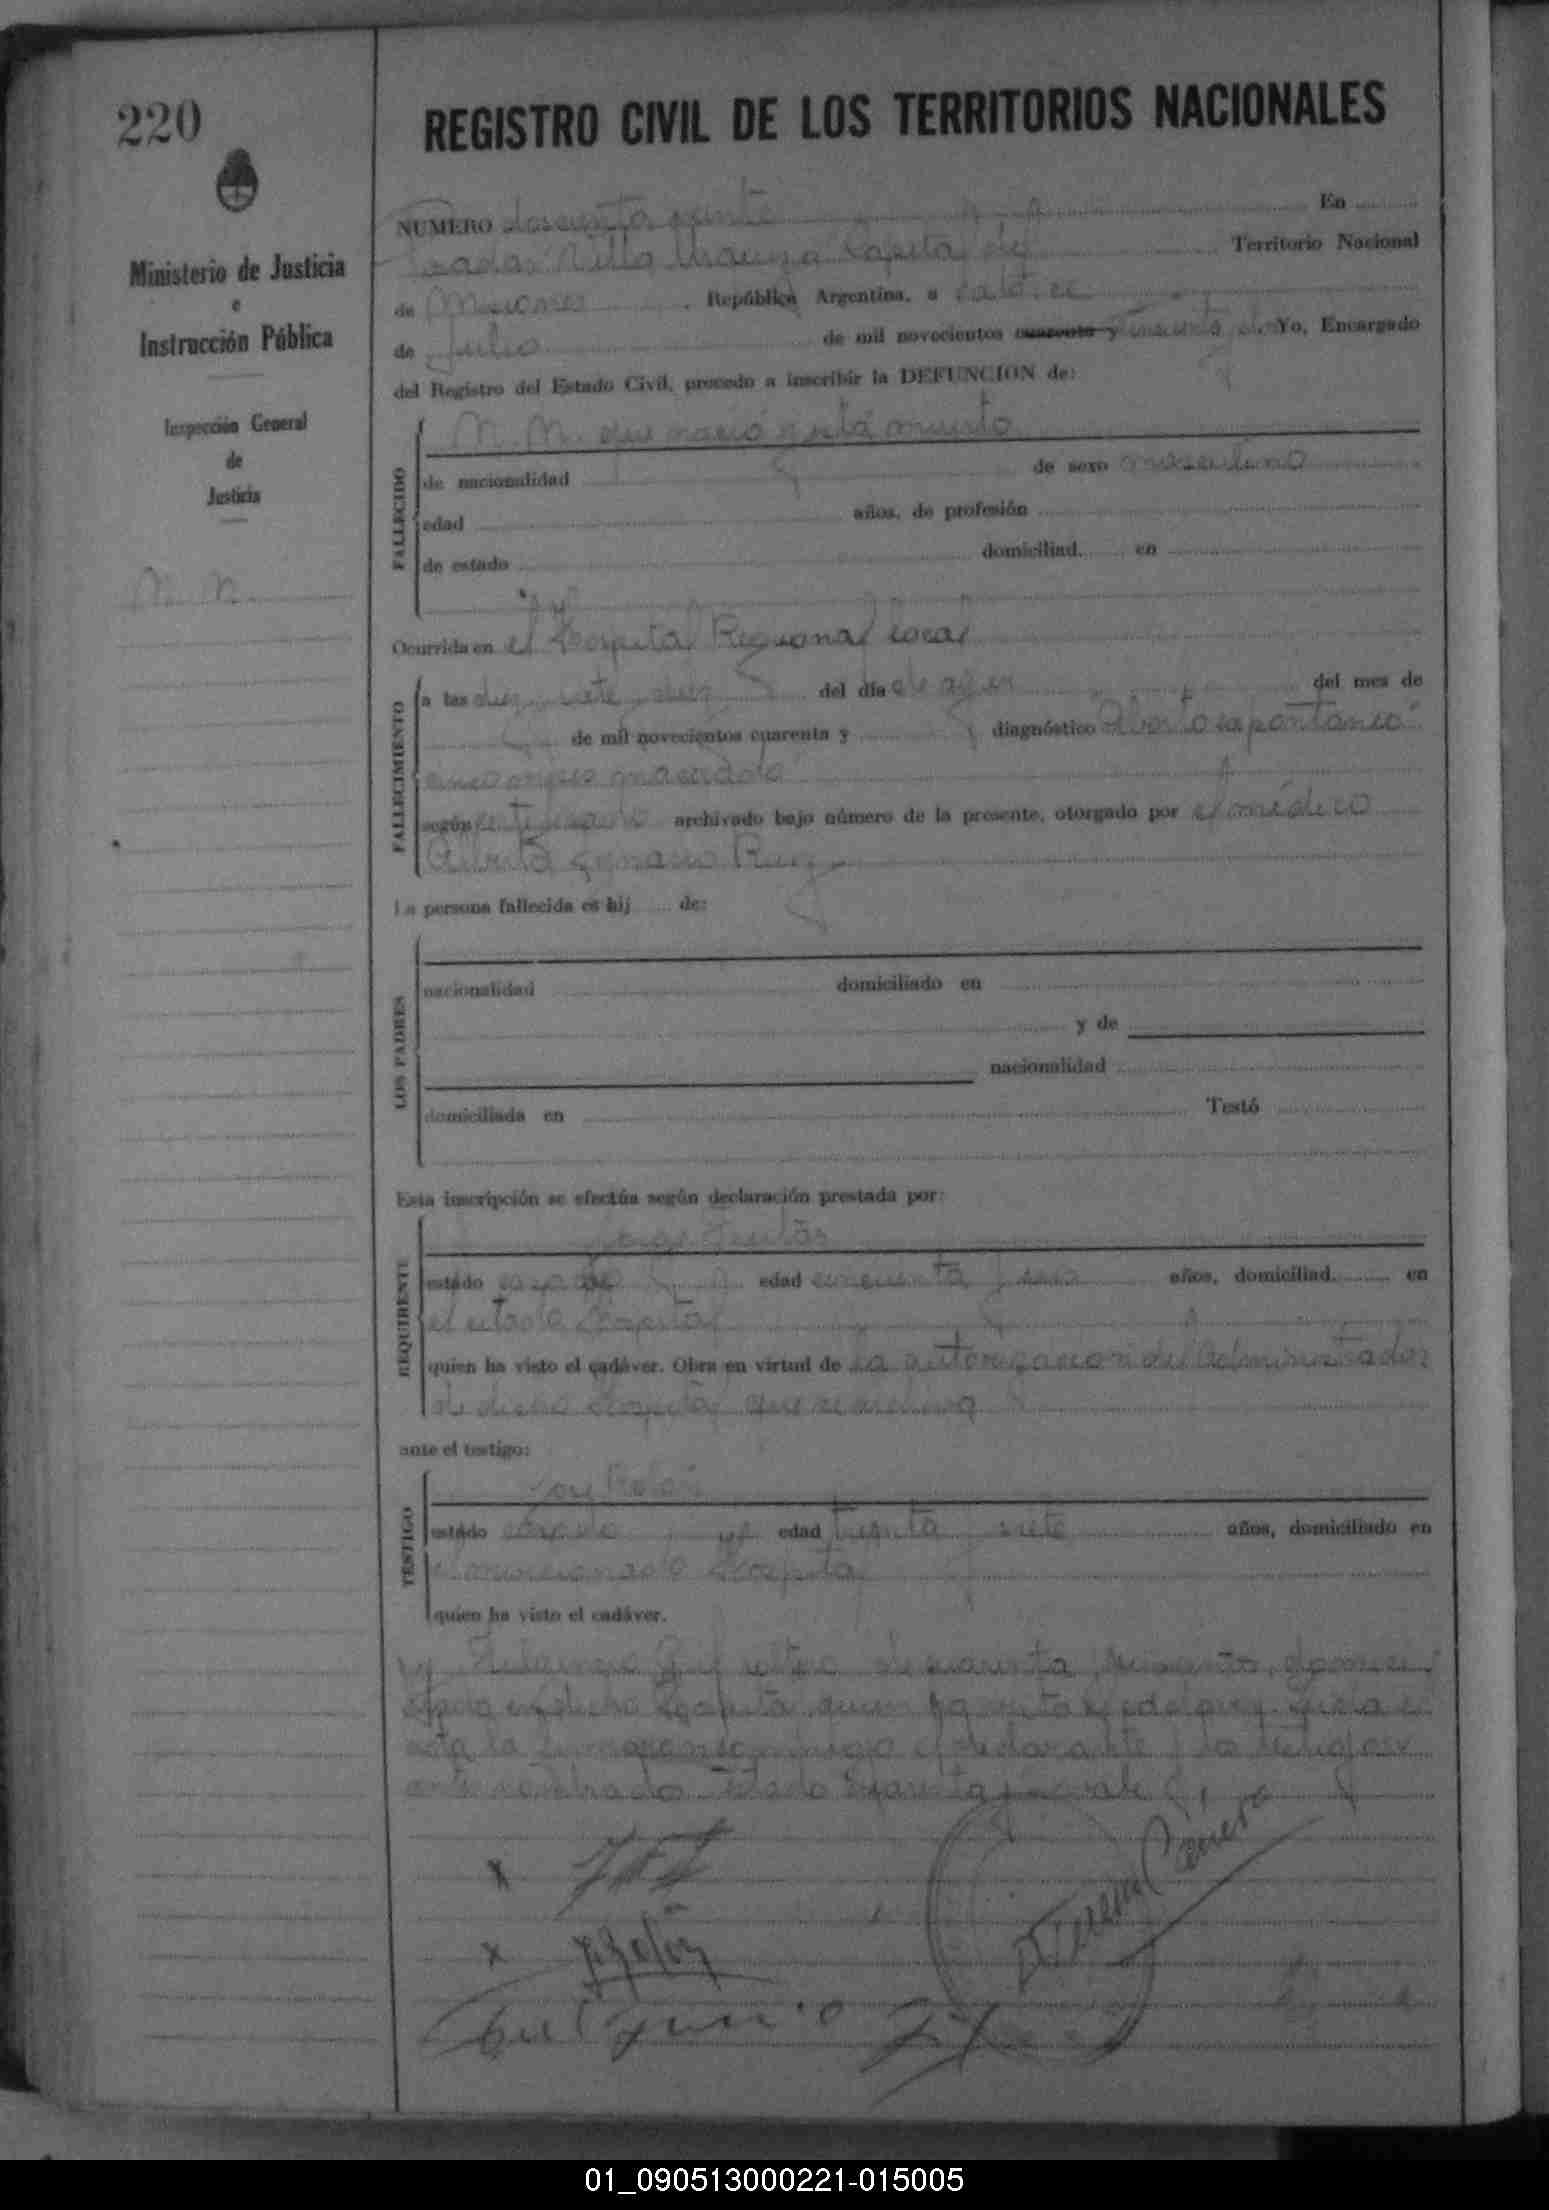 220
REGISTRO CIVIL DE LOS TERRITORIOS NACIONALES
Ministerio de Justicia
e
Instrucción Pública
Inspección General
de
Justicia
N. N.
NUMERO doscientos veinte En
Posadas Villa Urquiza Capital de Territorio Nacional
de Misiones República Argentina, a catorce
de Julio de mil novecientos cuarenta y cincuenta y Yo, Encargado
del Registro del Estado Civil, procedo a inscribir la DEFUNCION de:
FALLECIDO
N. N. que nació y está muerto
de nacionalidad de sexo masculino
edad años, de profesión
de estado domiciliad en
Ocurrida en el Hospital Regional local
FALLECIMIENTO
a las diez siete diez del día de ayer del mes de
de mil novecientos cuarenta y diagnóstico "Aborto espontaneo
cinco meses macerado"
según certificado archivado bajo número de la presente, otorgado por el médico
Alberto Ruiz
La persona fallecida es hij de:
LOS PADRES
nacionalidad domiciliado en
y de
nacionalidad
domiciliada en Testó
Esta inscripción se efectúa según declaración prestada por:
REQUIRENTE
Jorge
estado casado edad cincuenta y años, domiciliad en
el citado Hospital
quien ha visto el cadáver. Obra en virtud de la autorizacion del Administrador
de dicho Hospital que se archiva
ante el testigo:
TESTIGO
José Rolón
estado casado edad treinta y siete años, domiciliado en
el mencionado Hospital
quien ha visto el cadáver.
y Fulgencio Gil soltero de cuarenta y años, domici
en dicho Hospital quien ha visto el cadaver. Leida el
acta la firmaron conmigo el declarante y los testigos
nombrados Testado cuarenta y no vale
x
x J Rolón
Fulgencio Gil
01_090513000221-015005